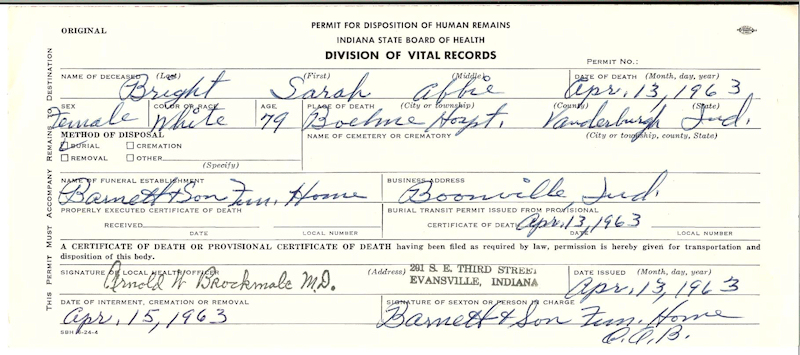 ORIGINAL
PERMIT FOR DISPOSITION OF HUMAN REMAINS
INDIANA STATE BOARD OF HEALTH
DIVISION OF VITAL RECORDS
PERMIT NO.:
THIS PERMIT MUST ACCOMPANY REMAINS TO DESTINATION
NAME OF DECEASED (Last) (First) (Middle) DATE OF DEATH (Month, day, year)
Bright Sarah Abbie Apr. 13, 1963
SEX COLOR OR RACE AGE PLACE OF DEATH (City or township) (County) (State)
Female White 79 Boehne Hospt. Vanderburgh Ind.
METHOD OF DISPOSAL NAME OF CEMETERY OR CREMATORY (City or township, county, State)
BURIAL CREMATION
REMOVAL OTHER
(Specify)
NAME OF FUNERAL ESTABLISHMENT BUSINESS ADDRESS
Barnett & Son Fun. Home Boonville, Ind.
PROPERLY EXECUTED CERTIFICATE OF DEATH BURIAL TRANSIT PERMIT ISSUED FROM PROVISIONAL
RECEIVED CERTIFICATE OF DEATH Apr. 13, 1963
DATE LOCAL NUMBER DATE LOCAL NUMBER
A CERTIFICATE OF DEATH OR PROVISIONAL CERTIFICATE OF DEATH having been filed as required by law, permission is hereby given for transportation and
disposition of this body.
SIGNATURE OF LOCAL HEALTH OFFICER (Address) 201 S. E. THIRD STREET DATE ISSUED (Month, day, year)
Arnold W Brockmole M.D. EVANSVILLE, INDIANA Apr. 13, 1963
DATE OF INTERMENT, CREMATION OR REMOVAL SIGNATURE OF SEXTON OR PERSON IN CHARGE
Apr. 15, 1963 Barnett & Son Fun. Home
SBH 6-24-4